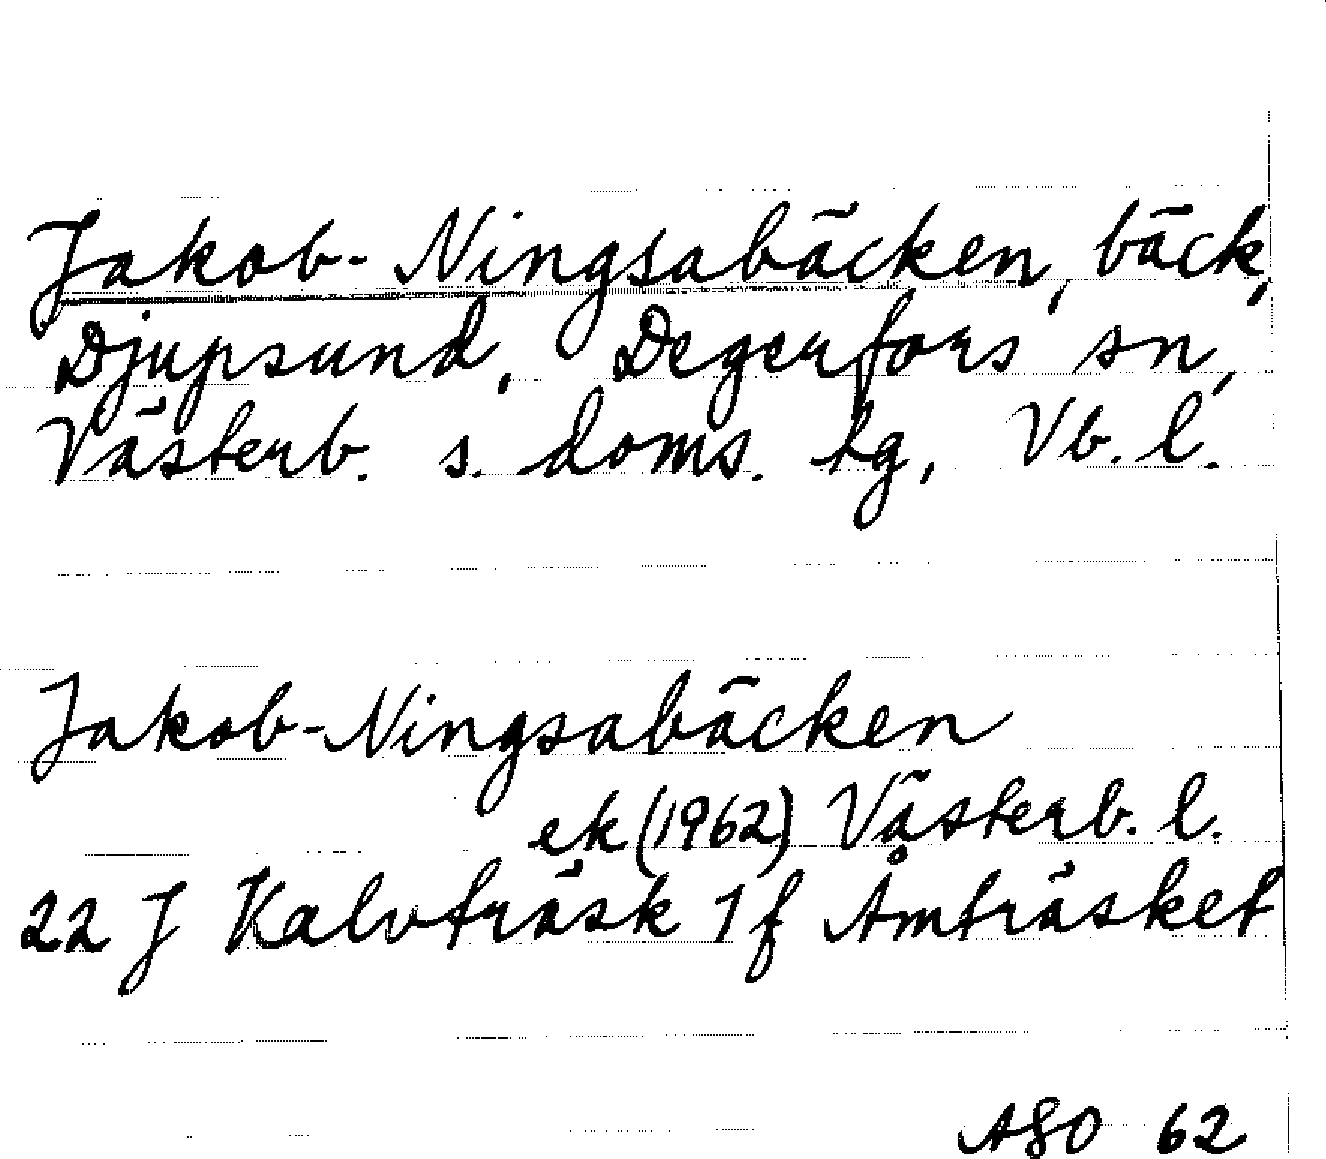 Jakob-Ningsabäcken, bäck,
Djupsund, Degerfors sn,
Västerb. s. doms. tg, Vb. l.
Jakob-Ningsabäcken
ek (1962) Västerb. l.
22 J Kalvträsk 1 f Åmträsket
62